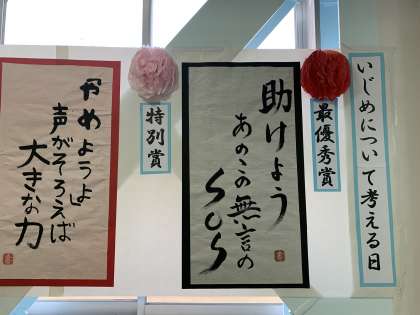 いじめについて考える日
最優秀賞
助けよう
あのこの無言の
SOS
特別賞
「やめようよ」
声がそろえば
大きな力